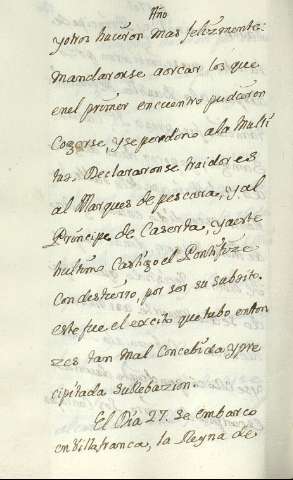 Año
yotros haceron mas felizmente:
Mandaronse aorcar los que
enel primer encuentro pudieron
Cogerse, yse perdono ala Multi
tud. Declararonse traidores
al Marques de pescara, y al
Principe de Caserta, y aeste
hultimo Castigo el Pontifize
Con destierro, por ser su subdito.
este fue el excito que tubo enton
zes tan mal Concebida y pre
cipitada sublebazion.
El Dia 27. se embarco
en Villafranca, la Reyna de